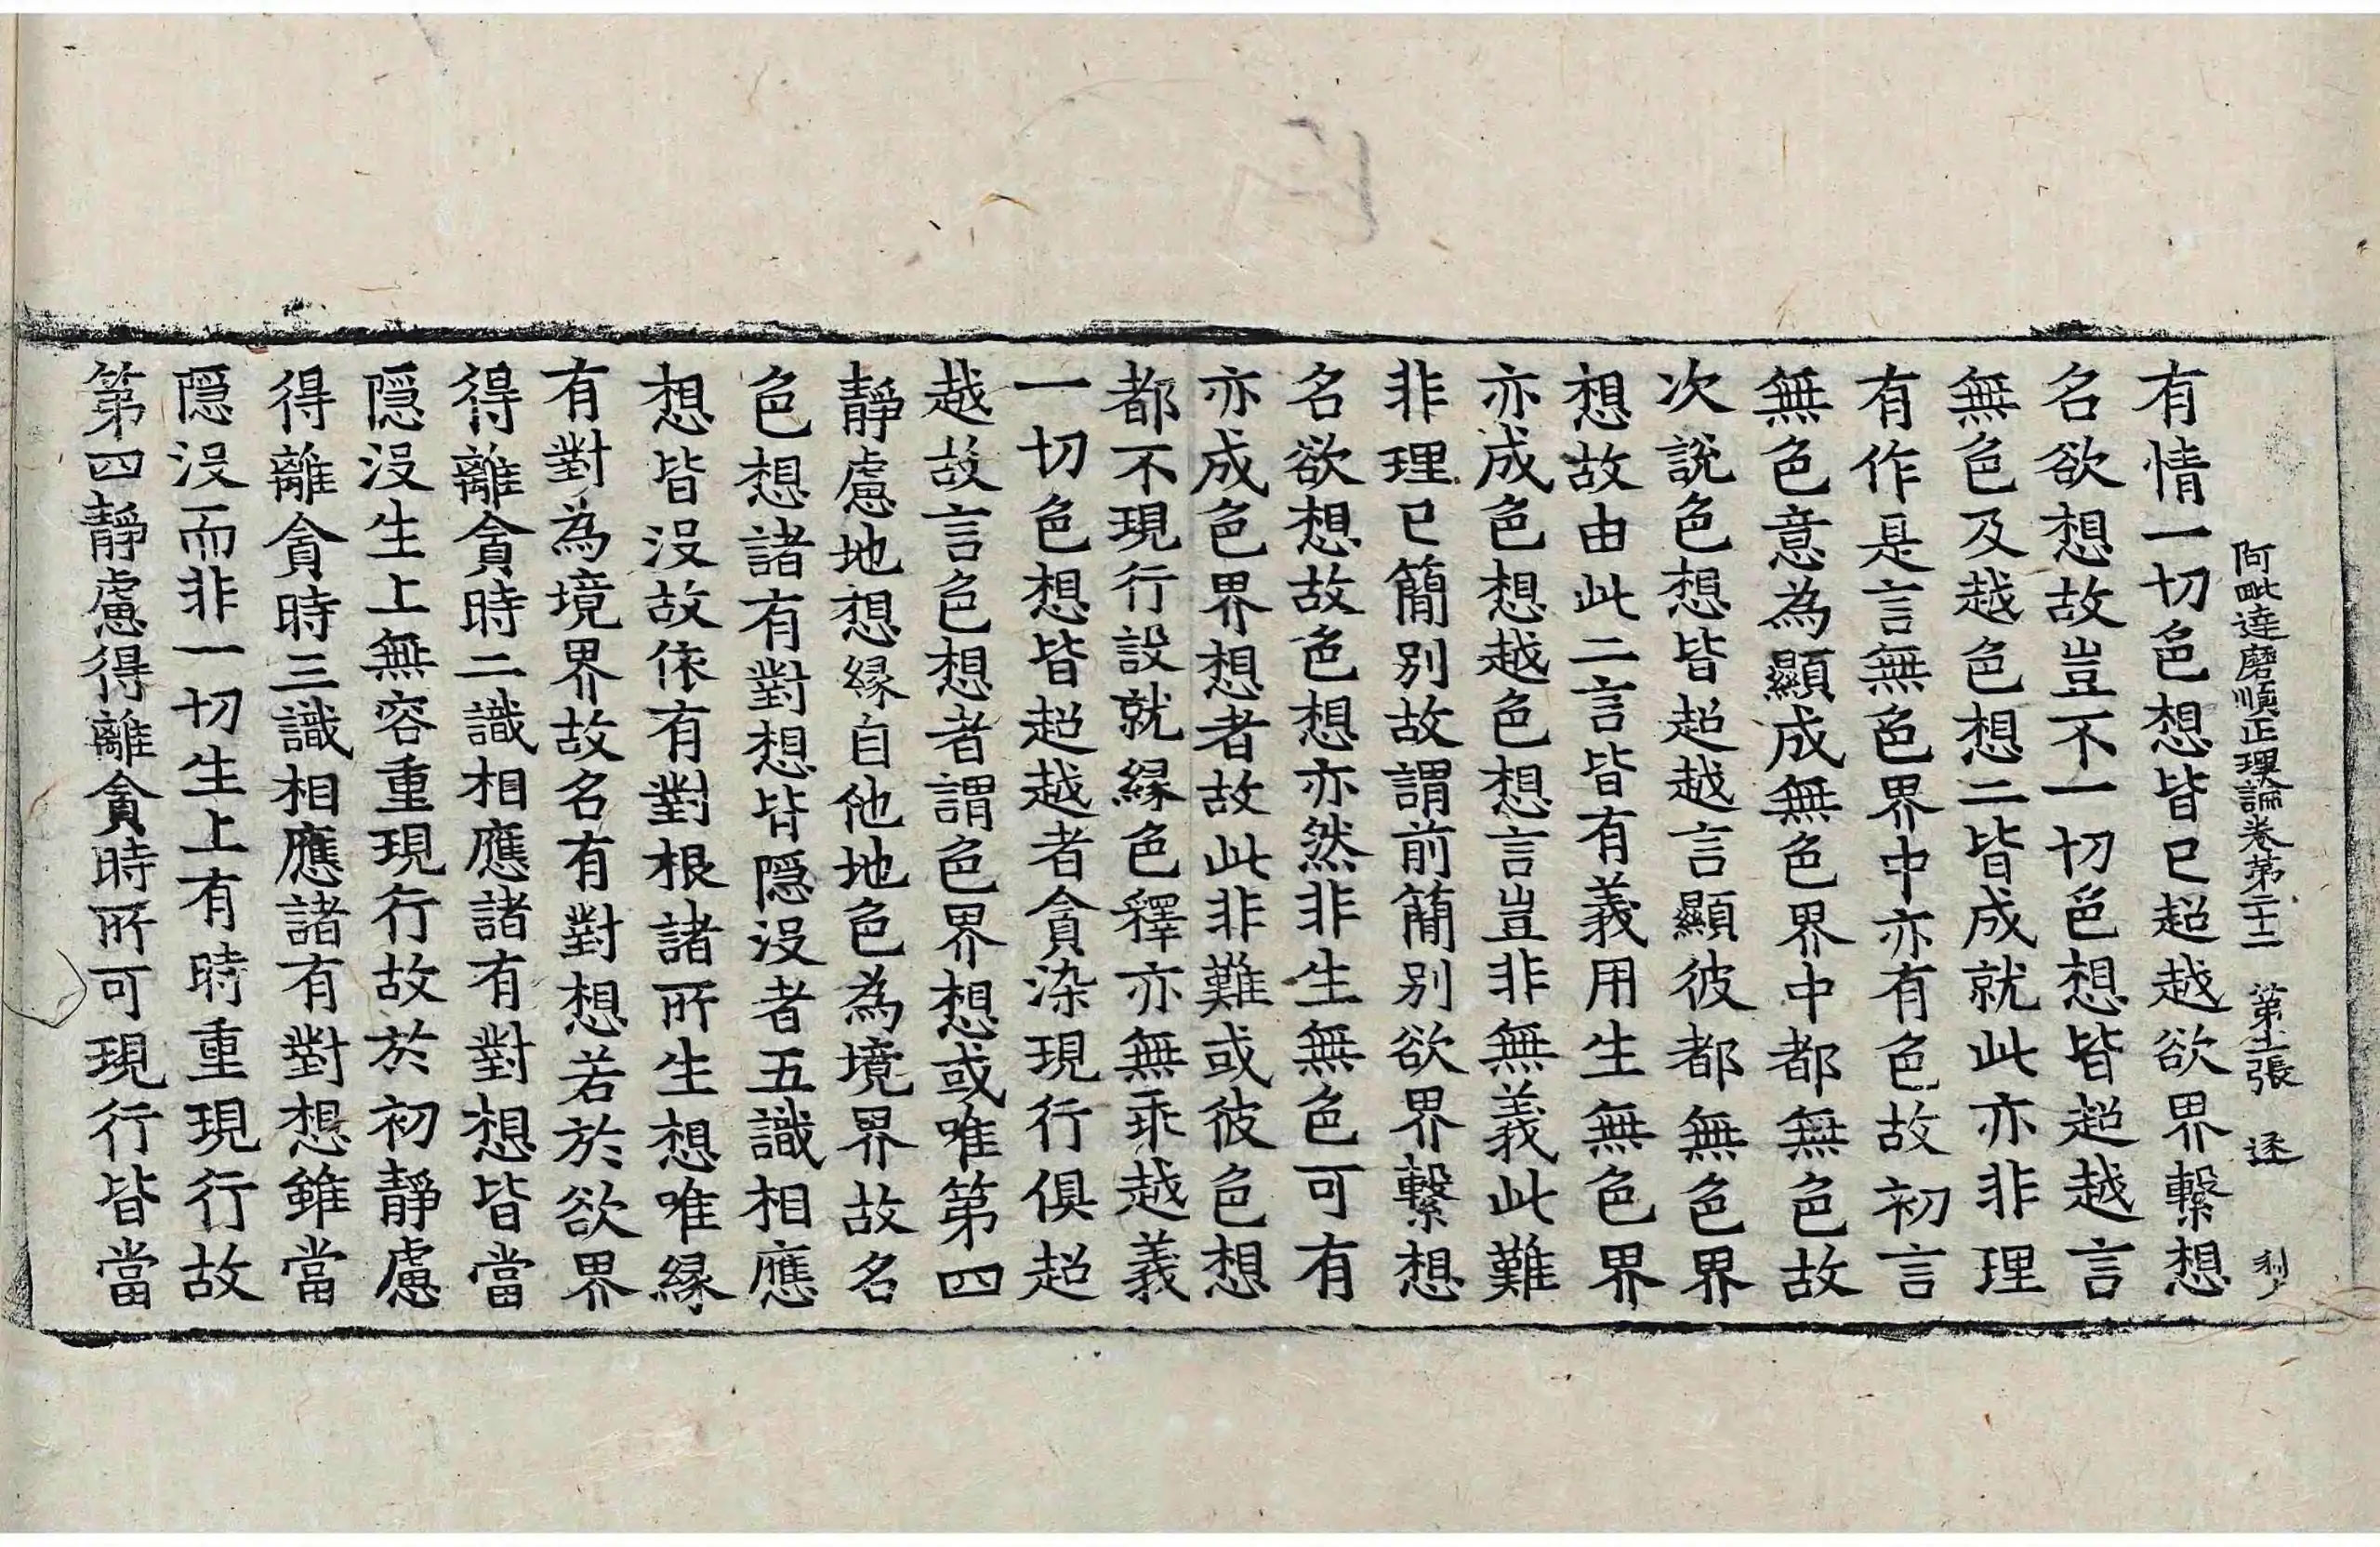 阿毗達磨順正理論卷第二十二 第十二張 逐 刹
有情一切色想皆已超越欲界繫想
名欲想故豈不一切色想皆超越言
無色及越色想二皆成就此亦非理
有作是言無色界中亦有色故初言
無色意為顯成無色界中都無色故
次說色想皆超越言顯彼都無色界
想故由此二言皆有義用生無色界
亦成色想越色想言豈非無義此難
非理已簡別故謂前簡別欲界繫想
名欲想故色想亦然非生無色可有
亦成色界想者故此非難或彼色想
都不現行設就緣色釋亦無乖越義
一切色想皆超越者貪染現行俱超
越故言色想者謂色界想或唯第四
靜慮地想緣自他地色為境界故名
色想諸有對想皆隱沒者五識相應
想皆沒故依有對根諸所生想唯緣
有對為境界故名有對想若於欲界
得離貪時二識相應諸有對想皆當
隱沒生上無容重現行故於初靜慮
得離貪時三識相應諸有對想雖當
隱沒而非一切生上有時重現行故
第四靜慮得離貪時所可現行皆當